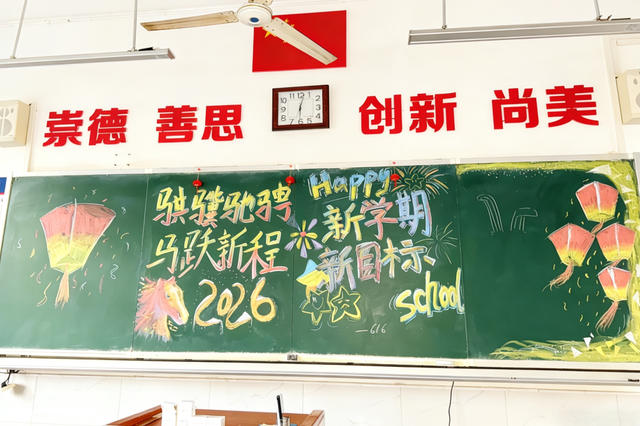 崇德 善思 创新 尚美
骐骥驰骋
马跃新程
2026
Happy
新学期
新目标
school
—616